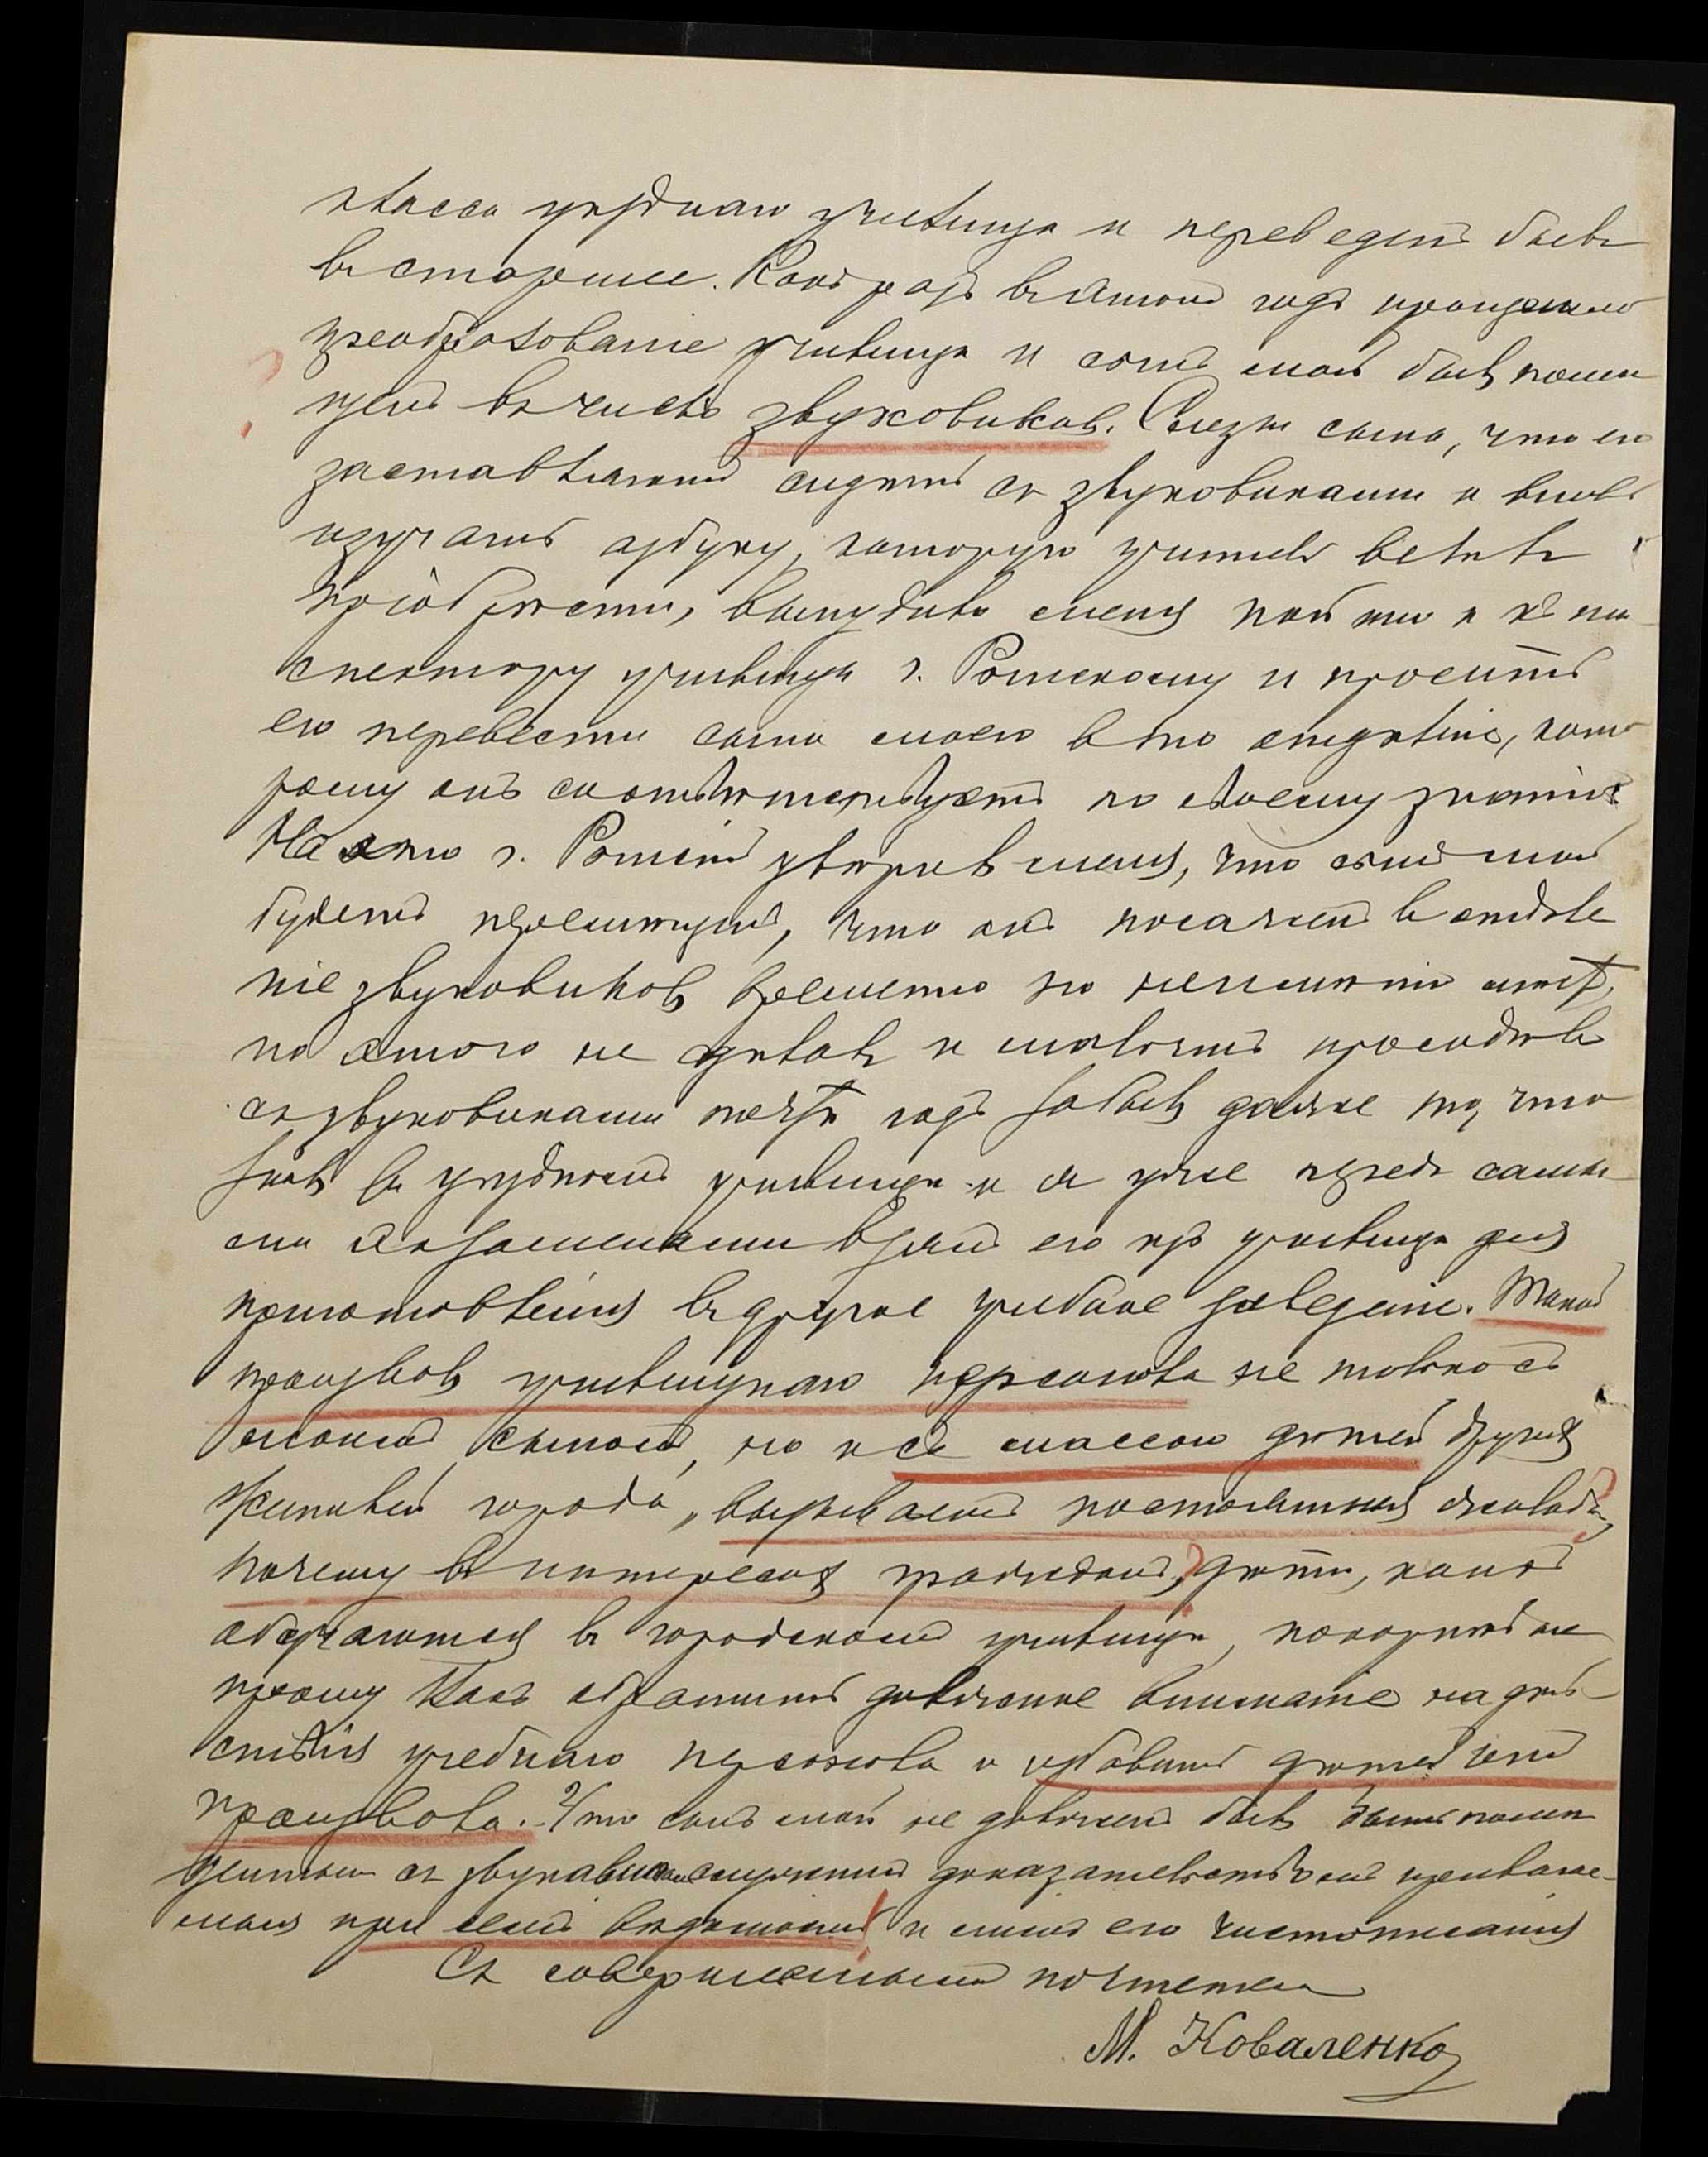 класса уезднаго училища и переведенъ былъ
въ старшее. Какъ разъ въ этомъ годѣ произошло
преобразованіе училища и сынъ мой былъ помѣ
щенъ въ число звуковиковъ. Слезы сына, что его
заставляютъ сидѣть съ звуковиками и вновь
изучать азбуку, которую учитель велѣлъ
пріобрѣсти, вынудило меня пойти и къ ин
спектору училища г. Ромскому и просить
его перевести сына моего въ то отдѣленіе, кото
рому онъ соотвѣтствуетъ по своему знанію
На это г. увѣрилъ меня, что сынъ мой
будетъ перемѣщенъ, что онъ посаженъ въ отдѣле
ніе звуковиковъ временно по неимѣнію мѣстъ,
но этого не сдѣлалъ и мальчикъ просидѣвъ
съ звуковиками почти годъ забылъ даже то, что
зналъ въ уѣздномъ училищѣ и я уже предъ самы
ми экзаменами взялъ его изъ училища для
приготовленія въ другое учебное заведеніе. Такой
произволъ училищнаго персонала не только съ
моимъ сыномъ, но и съ массою дѣтей другихъ
жителей города, вызываетъ постоянныя жалобы,
почему въ интересахъ гражданъ, дѣти, коихъ
обучаются въ городскомъ училищѣ, покорнѣйше
прошу Васъ обратить должное вниманіе на дѣй
ствія учебнаго персонала и избавить дѣтей отъ
произвола. Что сынъ мой не долженъ былъ быть помѣ
щеннымъ съ звуковиками служитъ доказательствомъ прилагае-
мыя при семъ вѣдомость и листъ его чистописанія
Съ совершеннымъ почтеніемъ
М. Коваленко